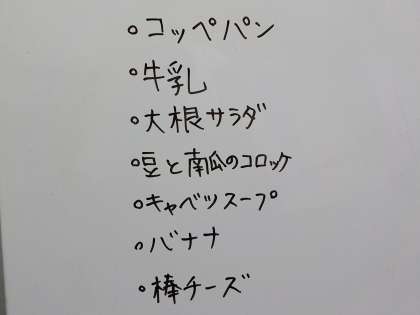 ○コッペパン
○牛乳
○大根サラダ
○豆と南瓜のコロッケ
○キャベツスープ
○バナナ
○棒チーズ